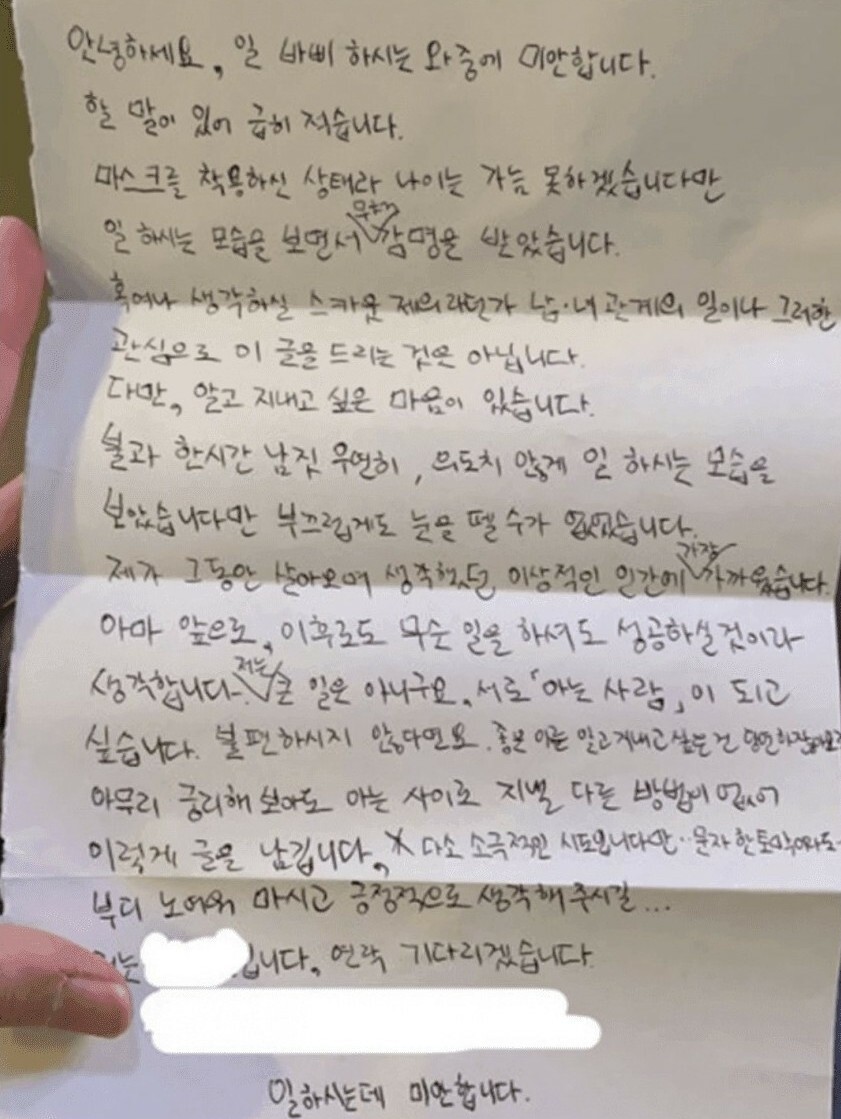 안녕하세요, 일 바삐 하시는 와중에 미안합니다.
할 말이 있어 급히 적습니다.
마스크를 착용하신 상태라 나이는 가늠 못하겠습니다만
일 하시는 모습을 보면서 무척 감명을 받았습니다.
혹여나 생각하실 스카웃 제의라던가 남·녀 관계의 일이나 그러한
관심으로 이 글을 드리는 것은 아닙니다.
다만, 알고 지내고 싶은 마음이 있습니다.
불과 한시간 남짓 우연히, 의도치 않게 일 하시는 모습을
보았습니다만 부끄럽게도 눈을 뗄 수가 없었습니다.
제가 그동안 살아오며 생각했던 이상적인 인간에 가장 가까웠습니다.
아마 앞으로, 이후로도 무슨 일을 하셔도 성공하실 것이라
생각합니다. 저는 큰 일은 아니구요, 서로 「아는 사람」이 되고
싶습니다. 불편하시지 않다면요. 좋은 이를 알고지내고 싶는건
아무리 궁리해 보아도 아는 사이로 지낼 다른 방법이 없어
이렇게 글을 남깁니다, 다소 소극적인 시도입니다만.. 문자 한
부디 노여워 마시고 긍정적으로 생각해 주시길...
입니다, 연락 기다리겠습니다.
일하시는데 미안합니다.